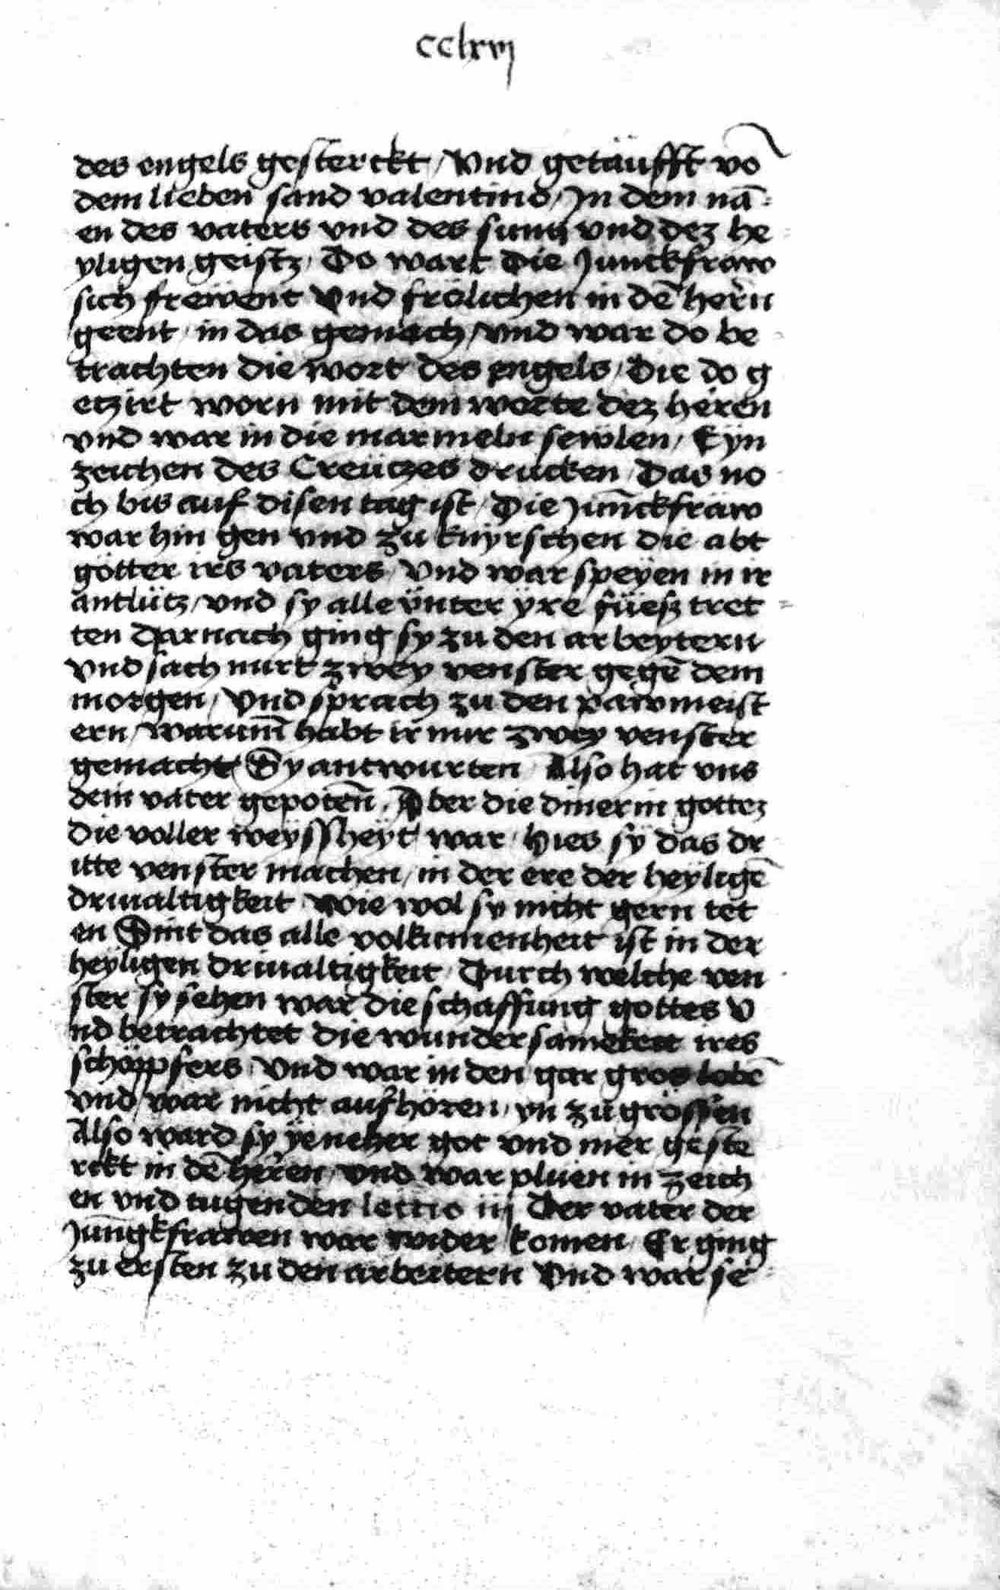 cclxvj
des engels gesterckt / Vnd getäufft vō
dem lieben sand valentino / In dem nā=
en des vaters vnd des suns vnd dez he
yligen geistz / Do wart die Junckfraw
sich frewent Vnd frölichen in dē herñ
geent / in das gemach / vnd war do be
trachten die wort des engels / Die do g
etzirt worn mit dem worte dez heren
vnd war in die marmeln sewlen / Eyn
zeichen des Creützes drucken / Das no
ch bis auf disen tag ist / Die Jūnckfraw
war hin gen vnd zu knyrschen die abt
götter irs vaters / Vnd war speyen in ir
antlütz / vnd sy alle vnter yre füesz tret=
ten Darnach ging sy zu den arbeytern
Vnd sach nurt zwey venster gegē dem
morgen / Vnd sprach zu den pawmeist
ern / Warumm̄ habt ir nur zwey venster
gemacht / Sy antwurten / Also hat vns
dein vater gepotenn̄ / Aber die dinerin gottez
die voller weyssheyt war / hies sy das dr
itte venster machen / in der ere der heyligē
driualtigkeit Wie wol sy nicht gern tet
en Sint das alle volkumenheit ist in der
heyligen driualtigkeit / Durch welche ven
ster sy sehen war die schaffung gottes V
nd betrachtet die wundersamekeit ires
schöppfers / Vnd war in den gar gros lobē
vnd war nicht aufhören / yn zu grössen
Also ward sy yeneher got vnd mer geste
rckt in dē heren / vnd war pluen in zeich
en vnd tugenden lectio iij Der vater der
Jūngkfrawen war wider komen / Er ging
zu ersten zu den arbeitern Vnd war se